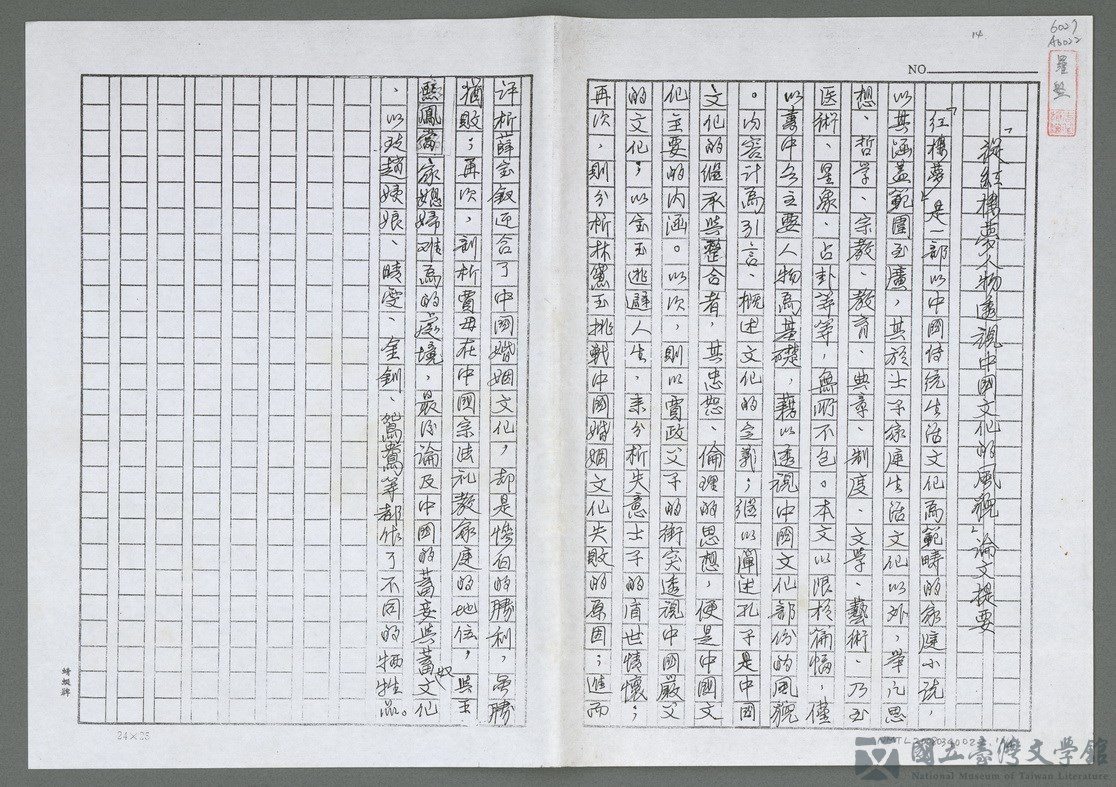 14
6027
A3022
羅盤
NO
「從紅樓夢人物透視中國文化的風貌」論文提要
「紅樓夢」是一部以中國傳統生活文化為範疇的家庭小說，
以其涵蓋範圍至廣，其於士子家庭生活文化以外，舉凡思
想、哲學、宗教、教育、典章、制度、文學、藝術、乃至
医術、星象、占卦等等，無所不包。本文以限於篇幅，僅
以書中各主要人物為基礎，藉以透視中國文化部份的風貌
。內容計為引言、概述文化的定義；繼以闡述孔子是中國
文化的繼承與整合者，其忠恕、倫理的思想，便是中國文
化主要的內涵。以次，則以賈政父子的衝突透視中國嚴父
的文化；以宝玉逃避人生，来分析失意士子的 世情懷；
再次，則分析林黛玉挑戰中國婚姻文化失敗的原因；進而
評析薛宝釵迎合了中國婚姻文化，却是慘白的勝利，虽勝
猶敗；再次，剖析賈母在中國宗法礼教家庭的地位，與王
熙鳳當家媳婦难為的處境，最后論及中國的蓄妾與蓄奴文化
，以及趙姨娘、晴雯、金釧、鴛鴦等都作了不同的犧牲品。
蜻蜓牌
24×25
國立臺灣文學館
National Museum of Taiwan Literature